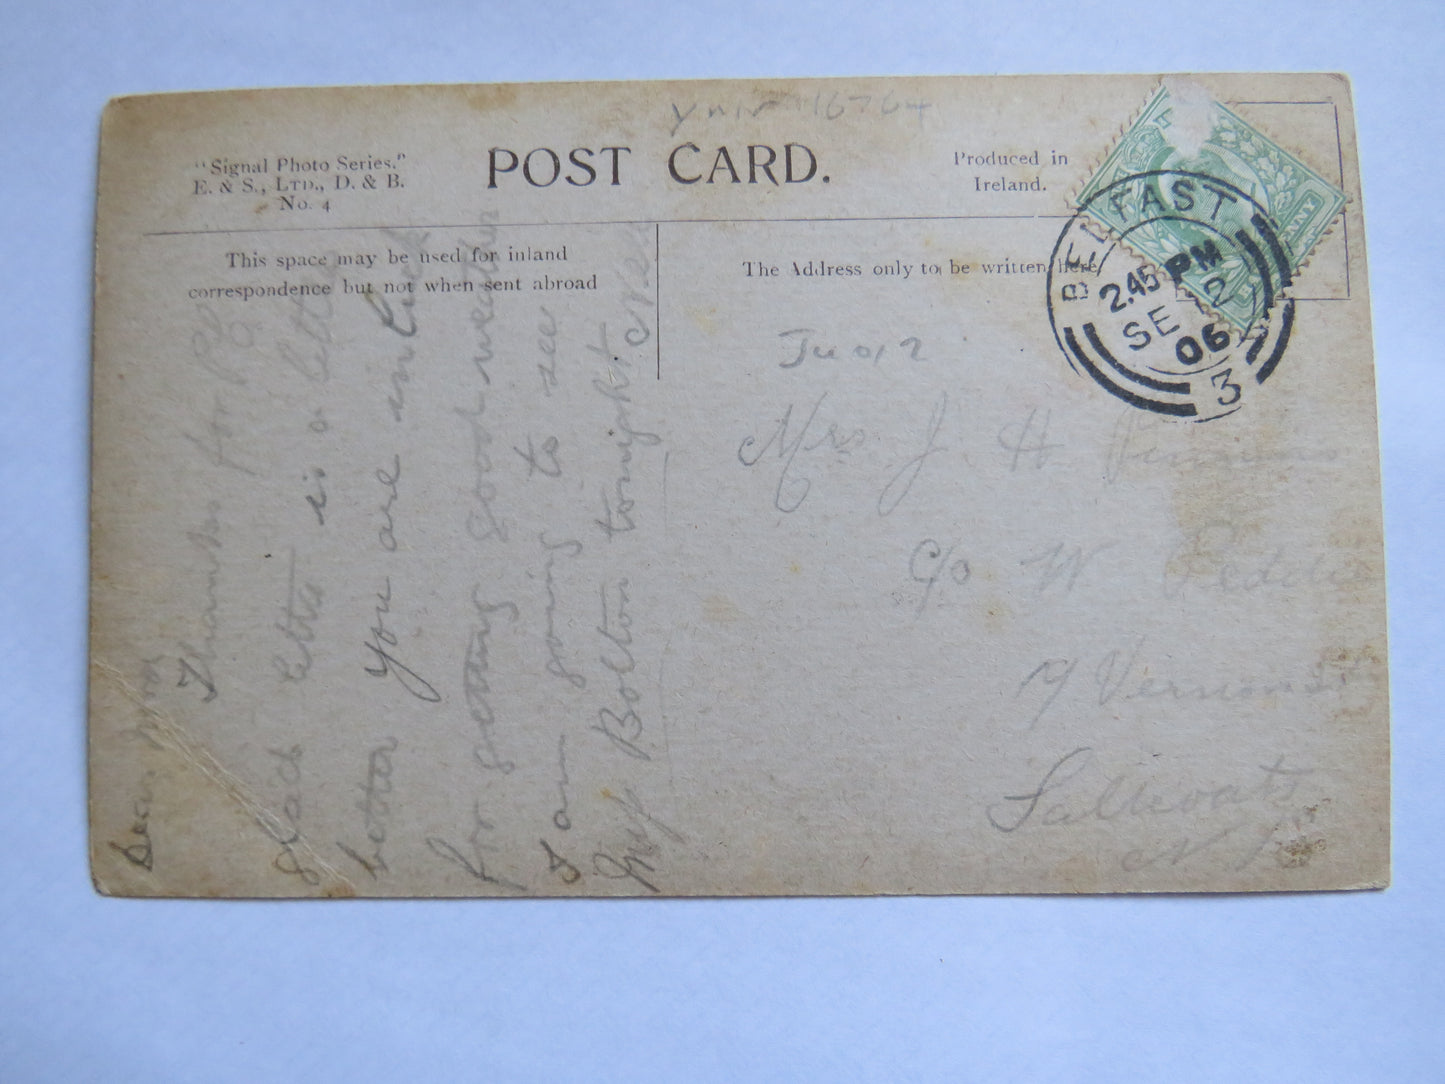 Ynir 16764
"Signal Photo Series."
E. & S., LTD., D. & B.
No. 4
POST CARD.
Produced in
Ireland.
This space may be used for inland
correspondence but not when sent abroad
The Address only to be written here
BELFAST
2.45 PM
SE 12
06
3
NNY
Dear
Thanks for P.C.
glad letter is a little
better You are in luck
for getting good weather
I am going to see
Miss Bolton tonight.
Mrs J H
c/o W
19 Vernon St
Saltcoats
N.B.